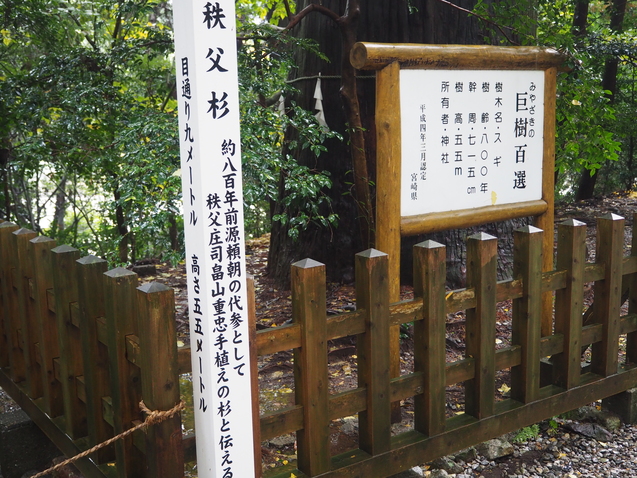 秩父杉
約八百年前源頼朝の代参として
秩父庄司畠山重忠手植えの杉と伝える
目通り九メートル 高さ五五メートル
みやざきの
巨樹百選
樹木名・スギ
樹齢・八〇〇年
幹周・七一五cm
樹高・五五m
所有者・神社
平成四年三月認定 宮崎県